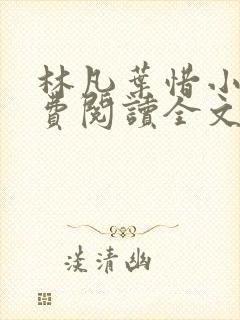 林凡葉惜小
費閱讀全文
淡清幽